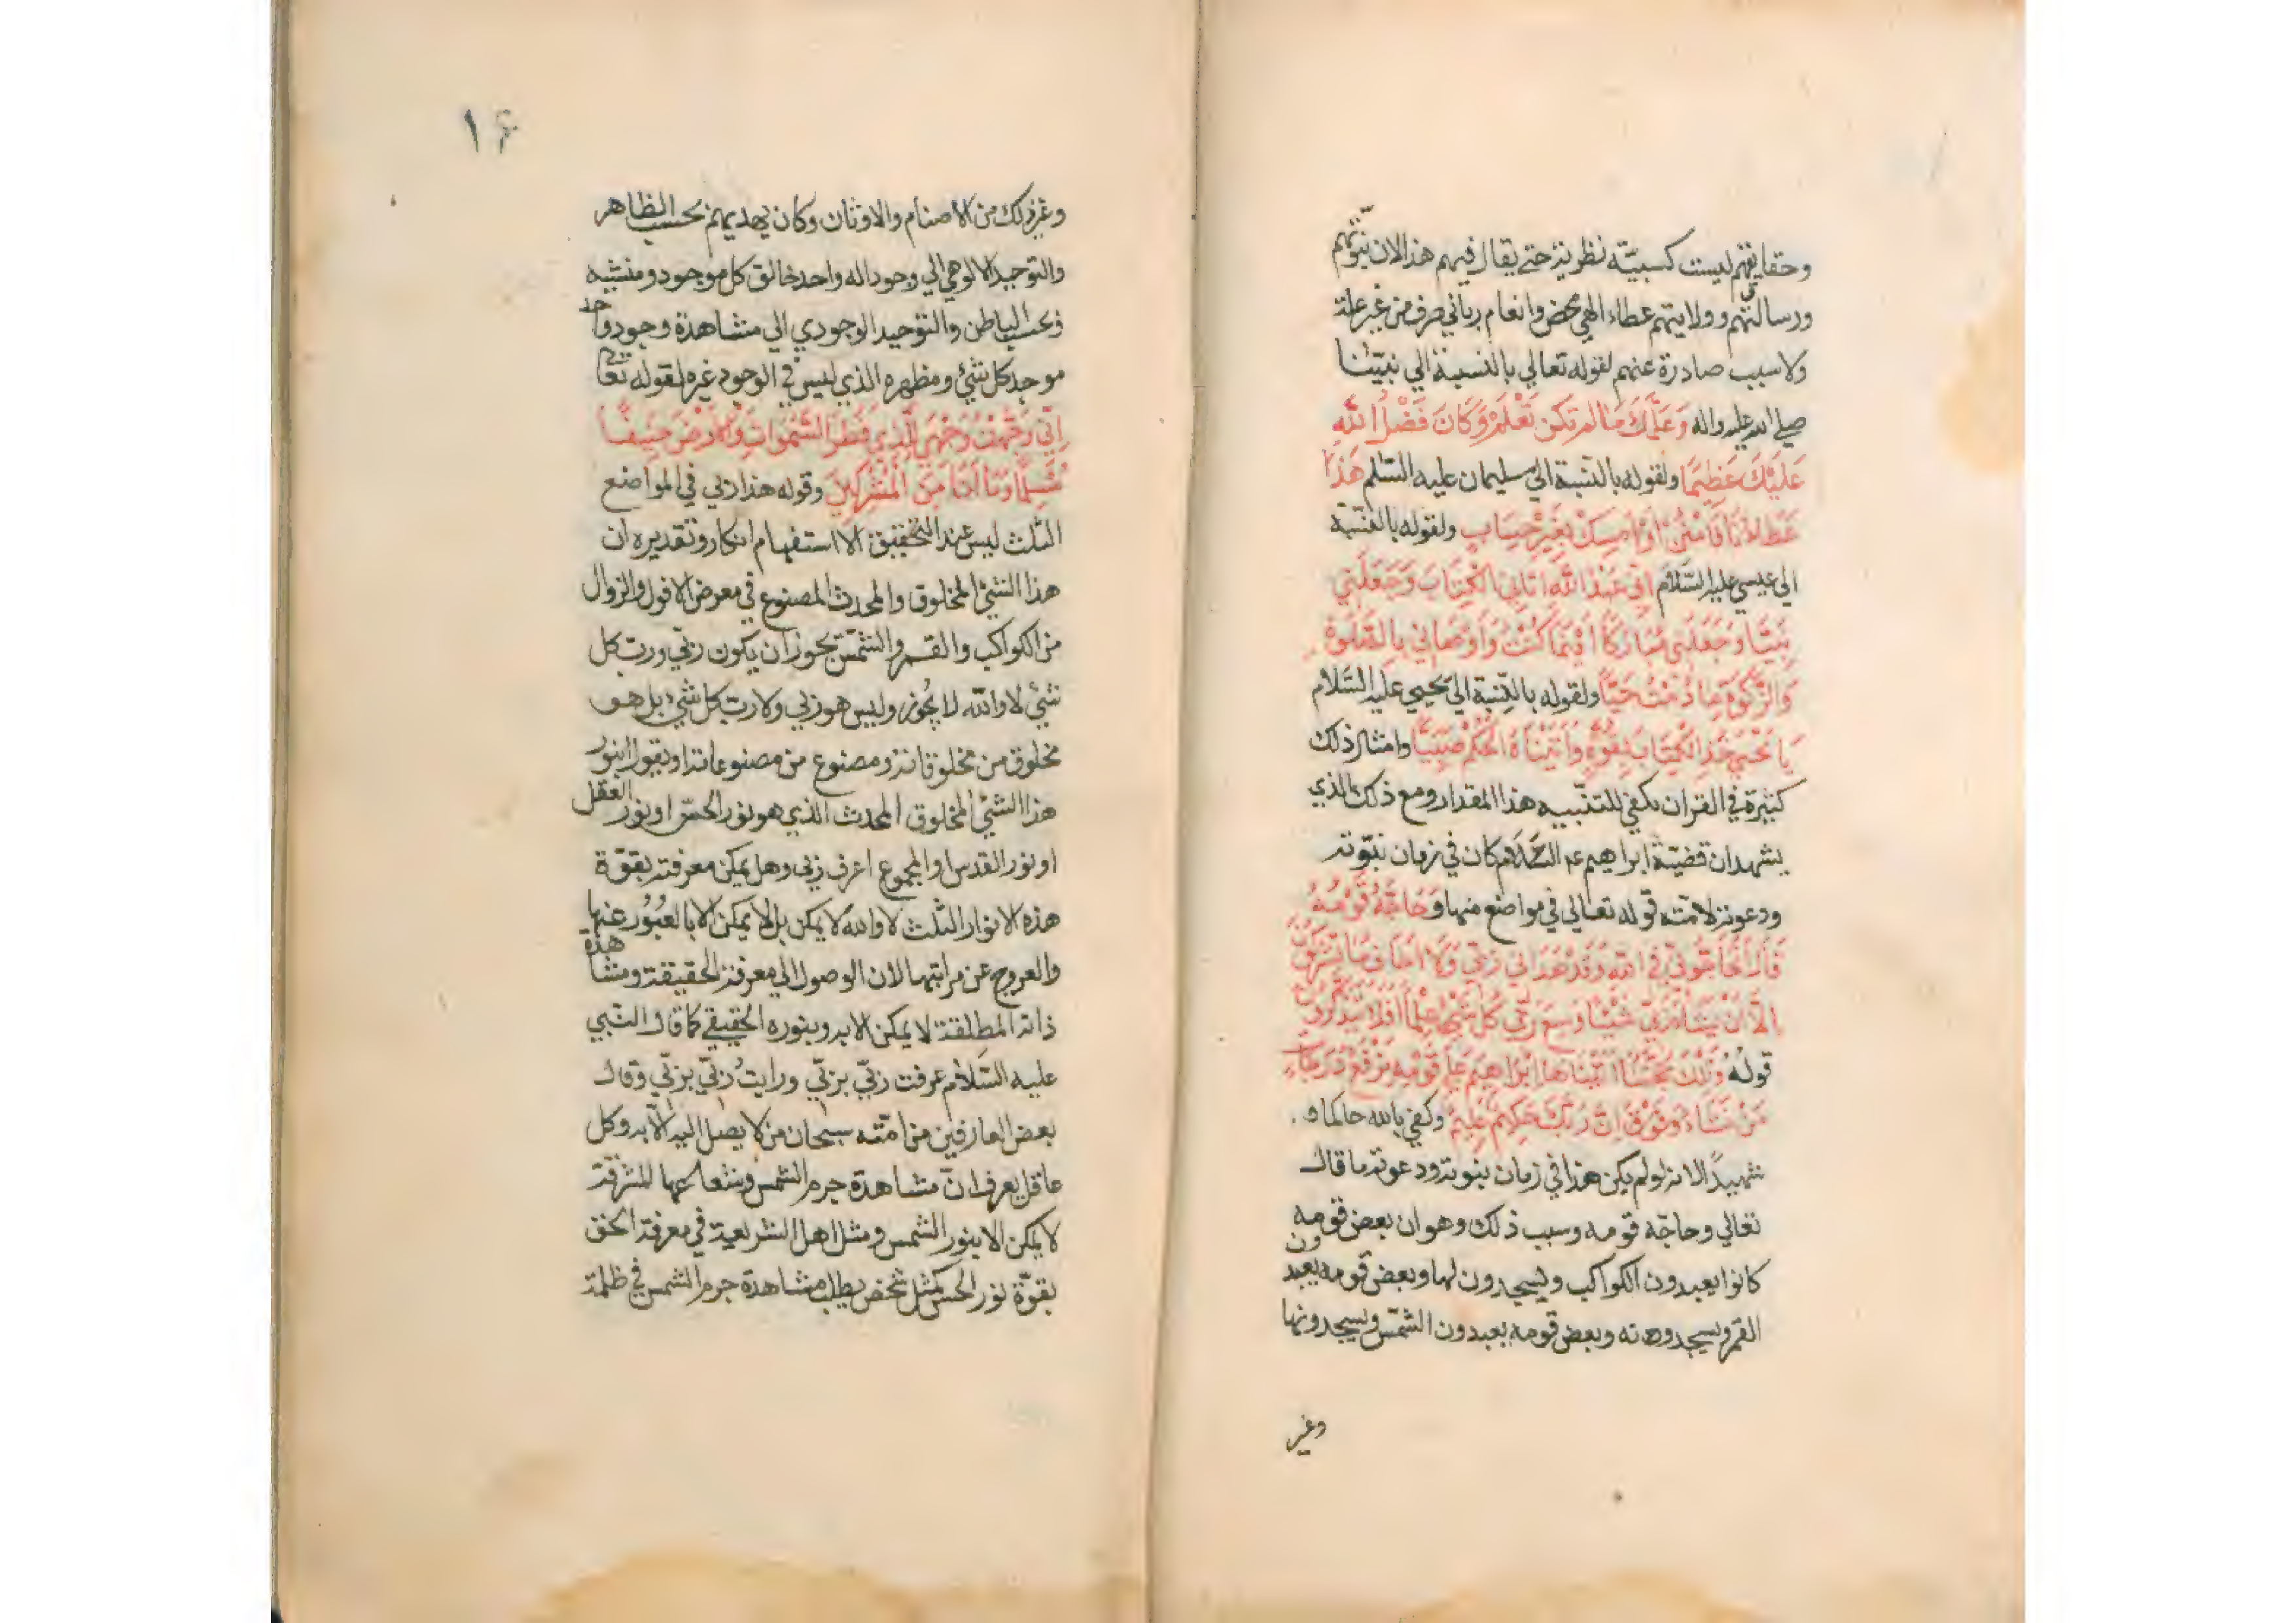 وحقايقهم ليست كسبيّة نظرية حتى يقال فيهم هذا لان نبوّتهم
ورسالتهم وولايتهم عطاء الهي محض وانعام رباني صرف من غير علة
ولا سبب صادرة عنهم لقوله تعالي بالنسبة الي نبيّنا
صلي الله عليه واله وَعَلَّمَكَ مَا لم تَكُن تَعْلَمُ وَكَانَ فَضْلُ اللَّهِ
عَلَيْكَ عَظِيمًا ولقوله بالنّسبة الي سليمان عليه السّلم هَذَا
عَطَاؤُنَا فَامْنُنْ أَوْ أَمْسِكْ بِغَيْرِ حِسَابٍ ولقوله بالنّسبة
الي عيسي عليه السَّلَام انّي عَبْدُ اللَّهِ اتَانِيَ الْكِتَابَ وَجَعَلَنِي
نَبِيًّا وَجَعَلَنِي مُبَارَكًا أَيْنَمَا كُنْتُ وَأَوْصَانِي بِالصَّلَوةِ
وَالزَّكَوةِ مَا دُمْتُ حَيًّا ولقوله بالنّسبة الي يحيي عليه السّلام
يَا يَحْيَى خُذِ الْكِتَابَ بِقُوَّةٍ وَآتَيْنَاهُ الْحُكْمَ صَبِيًّا وامثال ذلك
كثيرة في القران يكفي للتنّبيه هذا المقدار ومع ذلك الذي
يشهد ان قضيّة ابراهيم عم السّلام كان في زمان نبوّته
ودعوته لامّته قوله تعالي في مواضع منها وَحَاجَّهُ قَوْمُهُ
قَالَ أَتُحَاجُّونِّي فِي اللَّهِ وَقَدْ هَدَانِي رَبِّي وَلَا أَخَافُ مَا تُشْرِكُونَ
إِلَّا أَنْ يَشَاءَ رَبِّي شَيْئًا وَسِعَ رَبِّي كُلَّ شَيْءٍ عِلْمًا أَفَلَا تَتَذَكَّرُونَ
قوله وَتِلْكَ حُجَّتُنَا آتَيْنَاهَا إِبْرَاهِيمَ عَلَى قَوْمِهِ نَرْفَعُ دَرَجَاتٍ
مَنْ نَشَاءُ إِنَّ رَبَّكَ حَكِيمٌ عَلِيمٌ وكفي بالله حاكما و
شهيدًا لانه لو لم يكن هذا في زمان نبوته ودعوته ما قال
تعالي وحاجّه قومه وسبب ذلك وهو ان بعض قومه
كانوا يعبدون الكواكب ويسجدون لها وبعض قومه يعبدون
القمر ويسجدونه وبعض قومه يعبدون الشّمس ويسجدونها
وغير
١۶
وغير ذلك من الاصنام والاوثان وكان يهديهم بحسب الظاهر
والتوحيد الالوهي الي وجود اله واحد خالق كل موجود ومنشيه
وبحسب الباطن والتوحيد الوجودي الي مشاهدة وجود واحد
موجد كل شئ ومظهره الذي ليس في الوجود غيره لقوله تعا
إنّي وَجَّهْتُ وَجْهِيَ لِلَّذِي فَطَرَ السَّمَوَاتِ وَالْأَرْضَ حَنِيفًا
مُسْلِمًا وَمَا أَنَا مِنَ الْمُشْرِكِينَ وقوله هذا ربي في المواضع
الثلث ليس عند التحقيق الا استفهام انكار وتقديره ان
هذا الشئ المخلوق والمحدث المصنوع في معرض الافول والزوال
من الكواكب والقمر والشّمس يجوز ان يكون ربّي وربّ كل
شئ لا والله لا يجوز وليس هو ربي ولا ربّ كل شئ بل هو
مخلوق من مخلوقاته ومصنوع من مصنوعاته او يقول ابنور
هذا الشئ المخلوق المحدث الذي هو نور الحسّ او نور العقل
او نور القدس او المجموع اعرف ربي وهل يمكن معرفته بقوّة
هذه الانوار الثلث لا والله لا يمكن بل لا يمكن الا بالعبُوُر عنها
والعروج عن مراتبها لان الوصول الي معرفته الحقيقة ومشاهدة
ذاته المطلقة لا يمكن الا به وبنوره الحقيقي كما قال النّبي
عليه السّلام عرفت ربّي بربّي ورايتُ ربّي بربّي وقال
بعض العارفين من امّته سبحان من لا يصل اليه الّا به وكل
عاقل يعرف انّ مشاهدة جرم الشمس وشعاعها المشرقة
لا يمكن الا بنور الشمس ومثل اهل الشريعة في معرفة الحق
بقوّة نور الحس كمثل شخص يطلب مشاهدة جرم الشمس في ظلمة